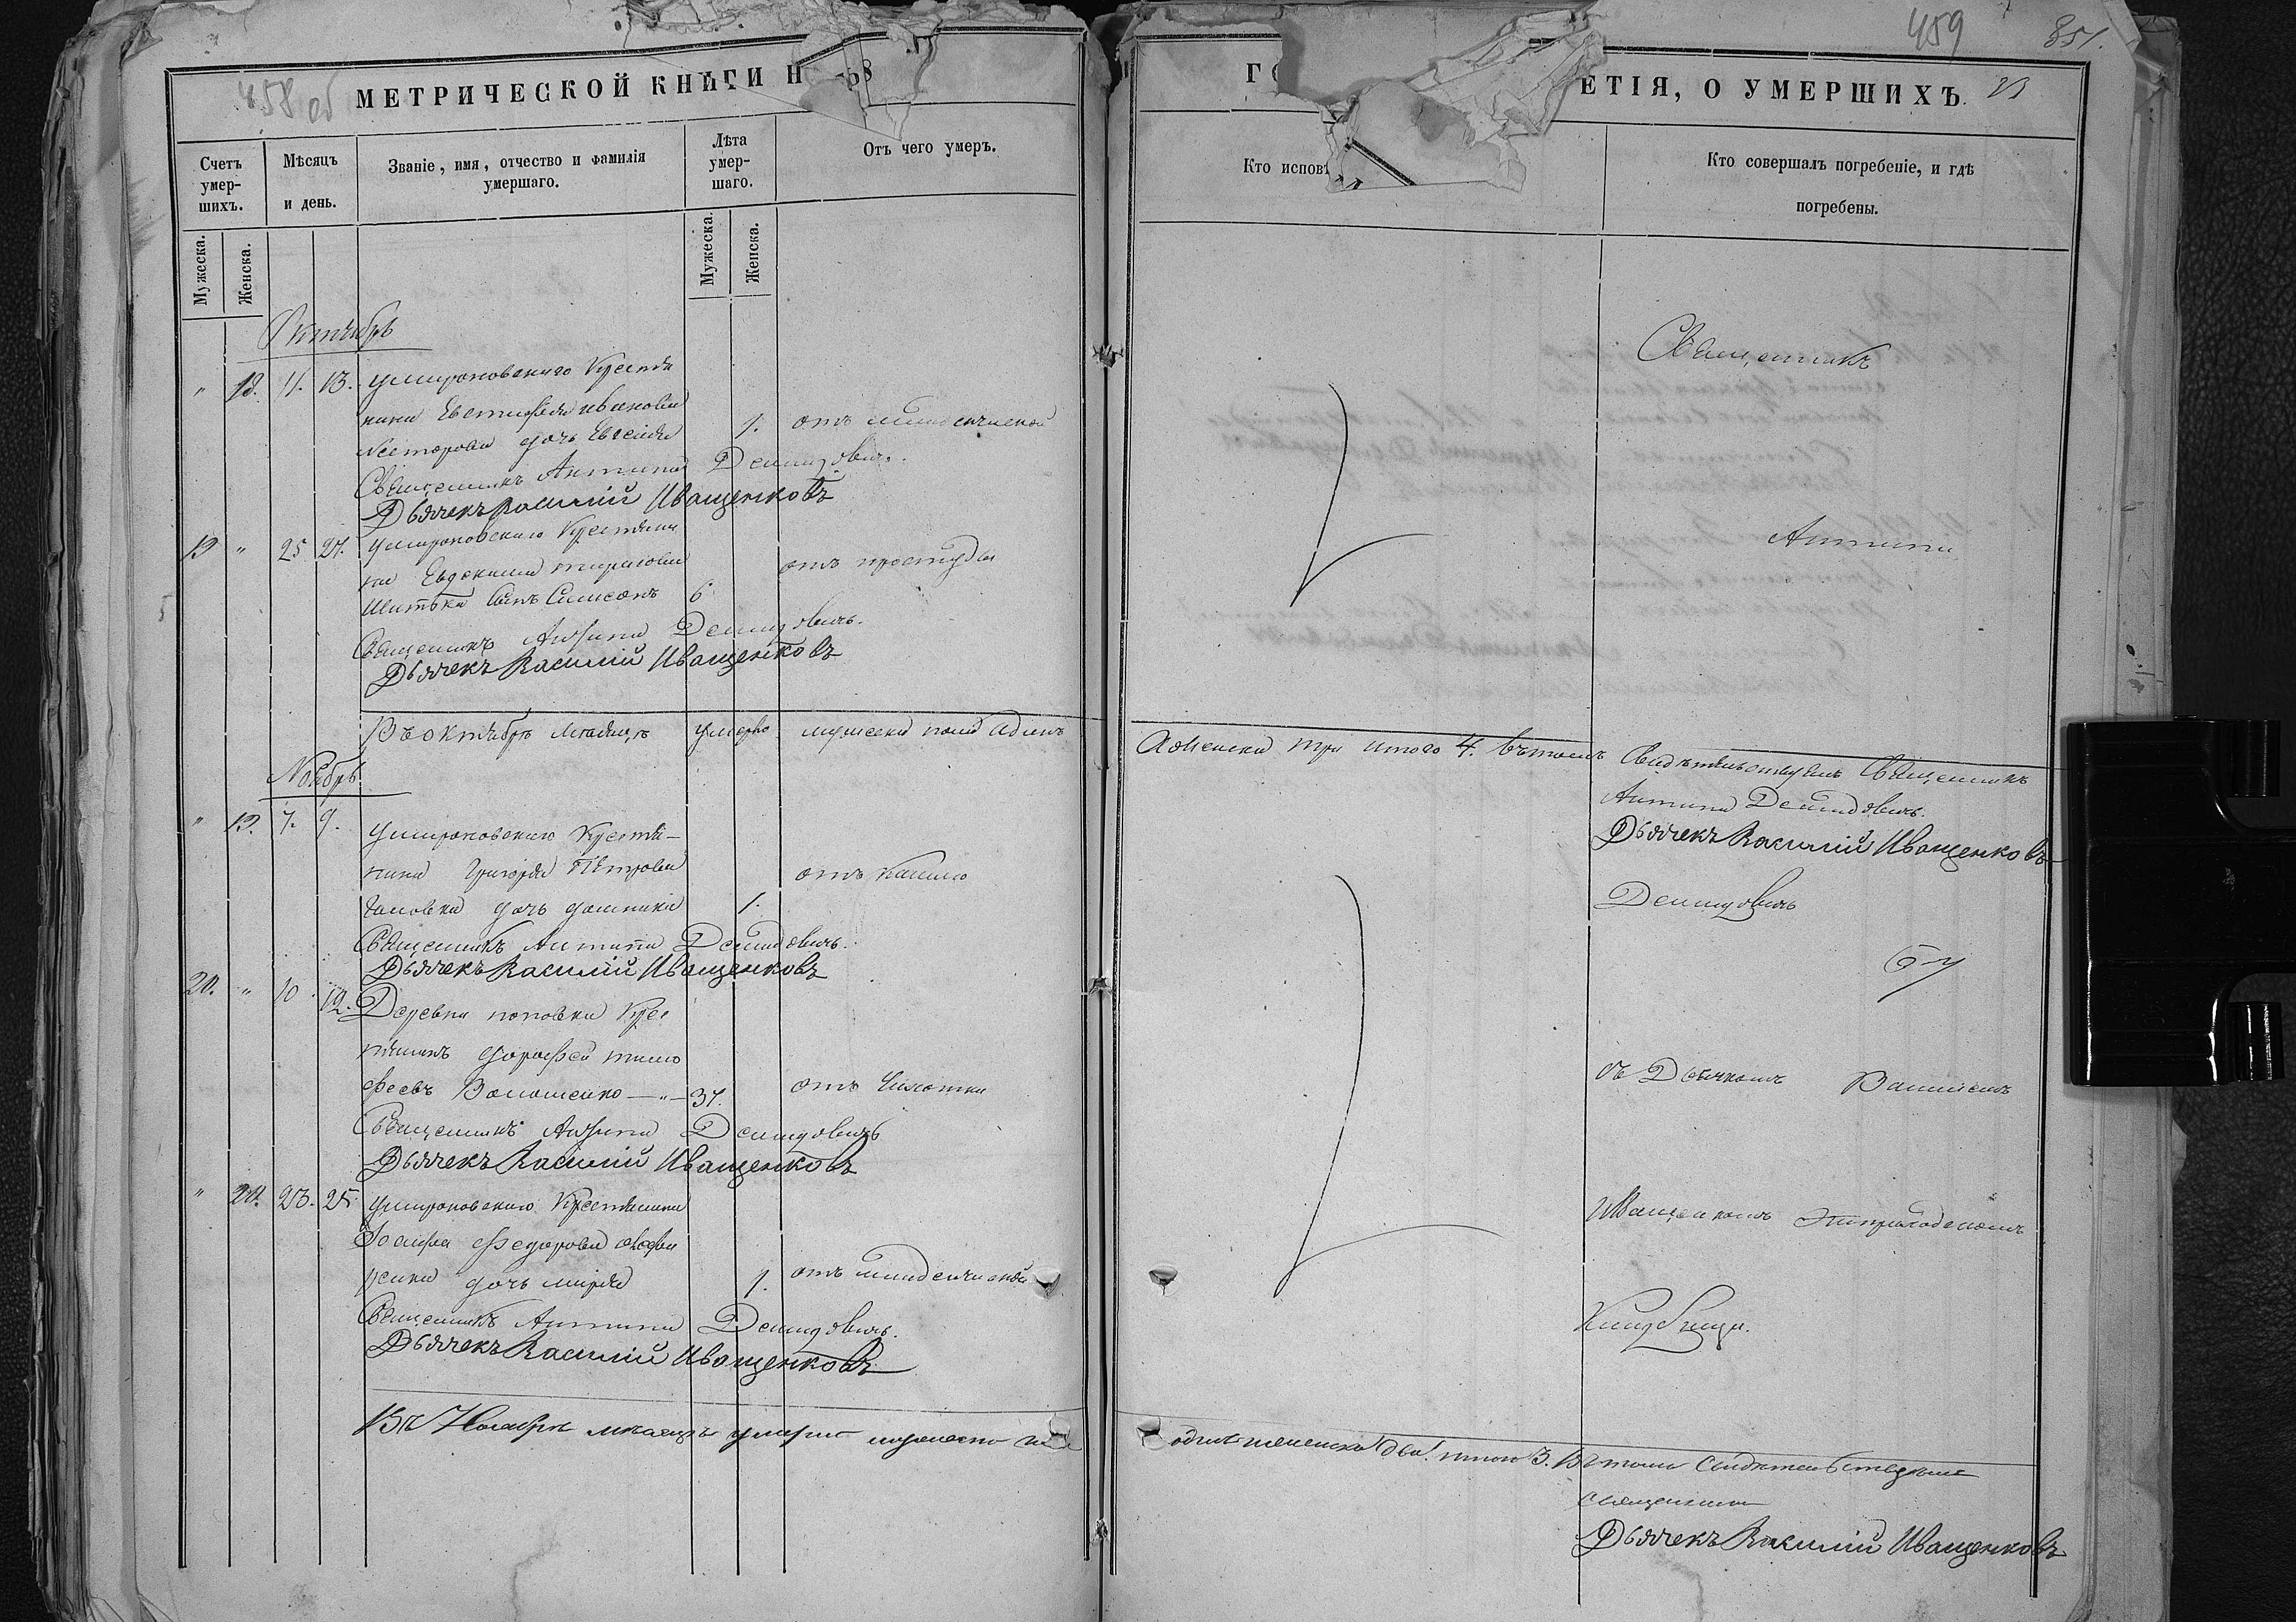 458 об
МЕТРИЧЕСКОЙ КНИГИ Н
Счетъ умер-шихъ.
Мѣсяцъ и день.
Званіе, имя, отчество и фамилія умершаго.
Лѣта умер-шаго.
Отъ чего умеръ.
Мужеска.
Женска.
Мужеска.
Женска.
Октябрь
" 18. 11. 13. Крестья
нина Ивановa
Нестерова дочь Евгенія 1. отъ младенческой
Священникъ Антипа Демидовичъ.
Дьячекъ Василій Иващенковъ
19 " 25 27. Крестьяни
на Евдокима отъ простуды
сынъ Самсонъ 6
Священникъ Антипа Демидовичъ.
Дьячекъ Василій Иващенковъ
Въ октябрѣ месяцѣ умерло мужеска пола одинъ
Ноябрь
" 19. 7. 9. Крестья-
нина Григорія Петрова отъ кашлю
дочь 1.
Священникъ Антипа Демидовичъ.
Дьячекъ Василій Иващенковъ
20. " 10. 12. Деревни поповки Крес
тянинъ Дорофей тимо
феевъ Волошенко — " — 37. отъ чихотки
Священникъ Антипа Демидовичъ
Дьячекъ Василій Иващенковъ
" 20. 23. 25. Крестянина
Федорова
дочь марія 1. отъ младенческой
Священникъ Антипа Демидовичъ.
Дьячекъ Василій Иващенковъ
Въ Ноябрѣ месяцѣ умерло мужеска
459
851.
ГО
ЕТІЯ, О УМЕРШИХЪ.
Кто исповѣ
Кто совершалъ погребеніе, и гдѣ погребены.
Священникъ
Антипа
Аженска три итого 4. Вътомъ Свидѣтельствуемъ Священникъ
Антипа Демидовичъ.
Дьячекъ Василій Иващенковъ
Демидовичъ
съ Дьячкомъ Василіемъ
Иващенкомъ
Кладбищи.
одинъ женска два итого 3. Въ томъ Свидѣтельствуемъ
священникъ
Дьячекъ Василій Иващенковъ